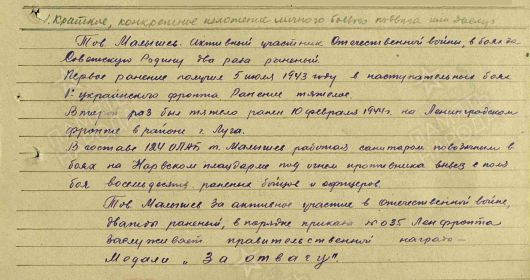 1. Краткое, конкретное изложение личного боевого подвига или заслуг
Тов. Малышев. Активный участник Отечественной войны, в боях за
Советскую Родину два раза раненый.
Первое ранение получил 5 июля 1943 году в наступательных боях
1го украинского фронта Ранение тяжелое.
Второй раз был тяжело ранен 10 февраля 1944г. на Ленинградском
фронте в районе г. Луга.
В составе 124 ОЛПБ т. Малышев работая санитаром повозочным в
боях на Нарвском плацдарме под огнем противника вывез с поля
боя восемьдесят раненых бойцов и офицеров.
Тов. Малышев за активное участие в Отечественной войне,
дважды раненый, в порядке приказа №035 Ленфронта
заслуживает правительственной награды –
Медали „За отвагу"